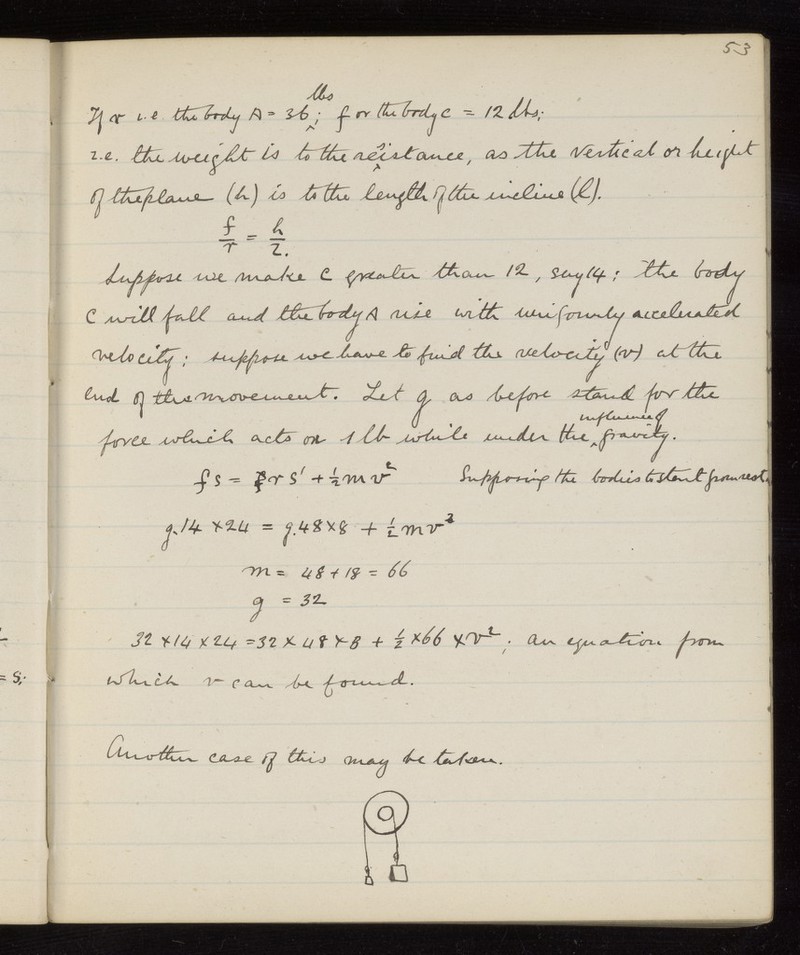 53
lbs
If r i.e the body A = 36 ; f or the body C = 12 lbs;
i.e. the weight is to the resistance, as the vertical or height
of the plane (h) is to the length of the incline (l).
f/r = h/l.
Suppose we make C greater than 12, say 14; the body
C will fall and the body A rise with uniformly accelerated
velocity; suppose we have to find the velocity (v) at the
end of this movement. Let g as before stand for the
influence of
force which acts on 1 lb while under the ‸ gravity.
fs = r s' + ½ m v² Supposing the bodies to start from rest.
g.14 × 24 = g.48 × 8 + ½ m v²
m = 48 + 18 = 66
g = 32
32 × 14 × 24 = 32 × 48 × 8 + ½ × 66 × v²; an equation from
which v can be found.
= S;
Another case of this may be taken.